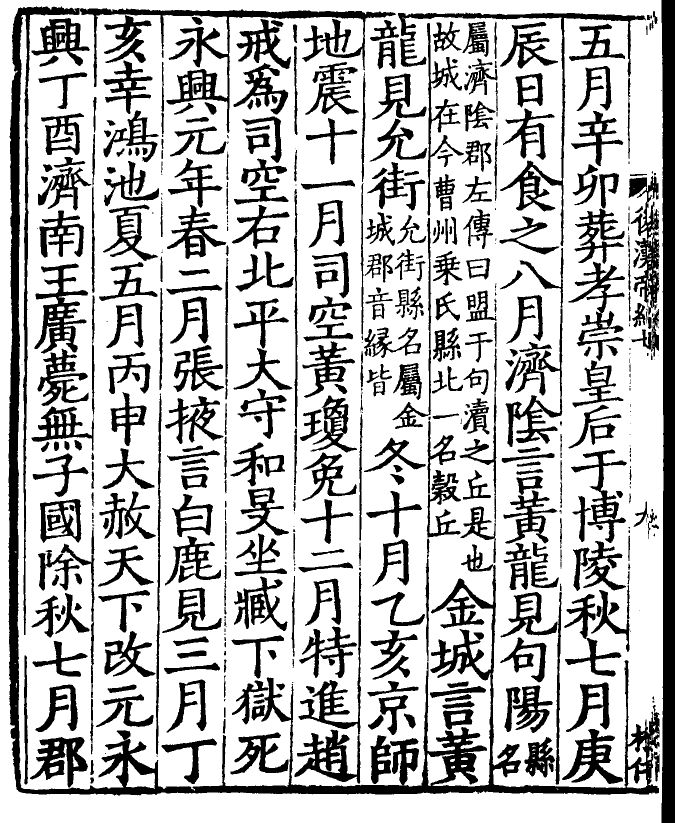 後漢帝紀七
五月辛卯葬孝崇皇后于博陵秋七月庚
辰日有食之八月濟陰言黃龍見句陽縣名
屬濟陰郡左傳曰盟于句瀆之丘是也故城在今曹州乘氏縣北一名穀丘金城言黃
龍見允街允街縣名屬金城郡音緣皆冬十月乙亥京師
地震十一月司空黃瓊免十二月特進趙
戒爲司空右北平大守和旻坐臧下獄死
永興元年春二月張掖言白鹿見三月丁
亥幸鴻池夏五月丙申大赦天下改元永
興丁酉濟南王廣薨無子國除秋七月郡